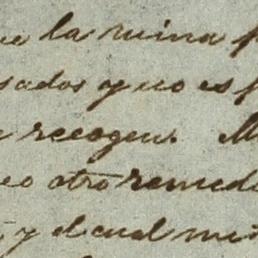 que la ruina
sados y no es
recogen. M
otro remed
y el cual me